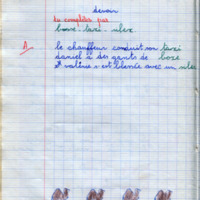 devoir
tu complètes par
boxe - taxi - silex
A le chauffeur conduit son taxi
daniel a des gants de boxe
valérie s'est blessée avec un silex